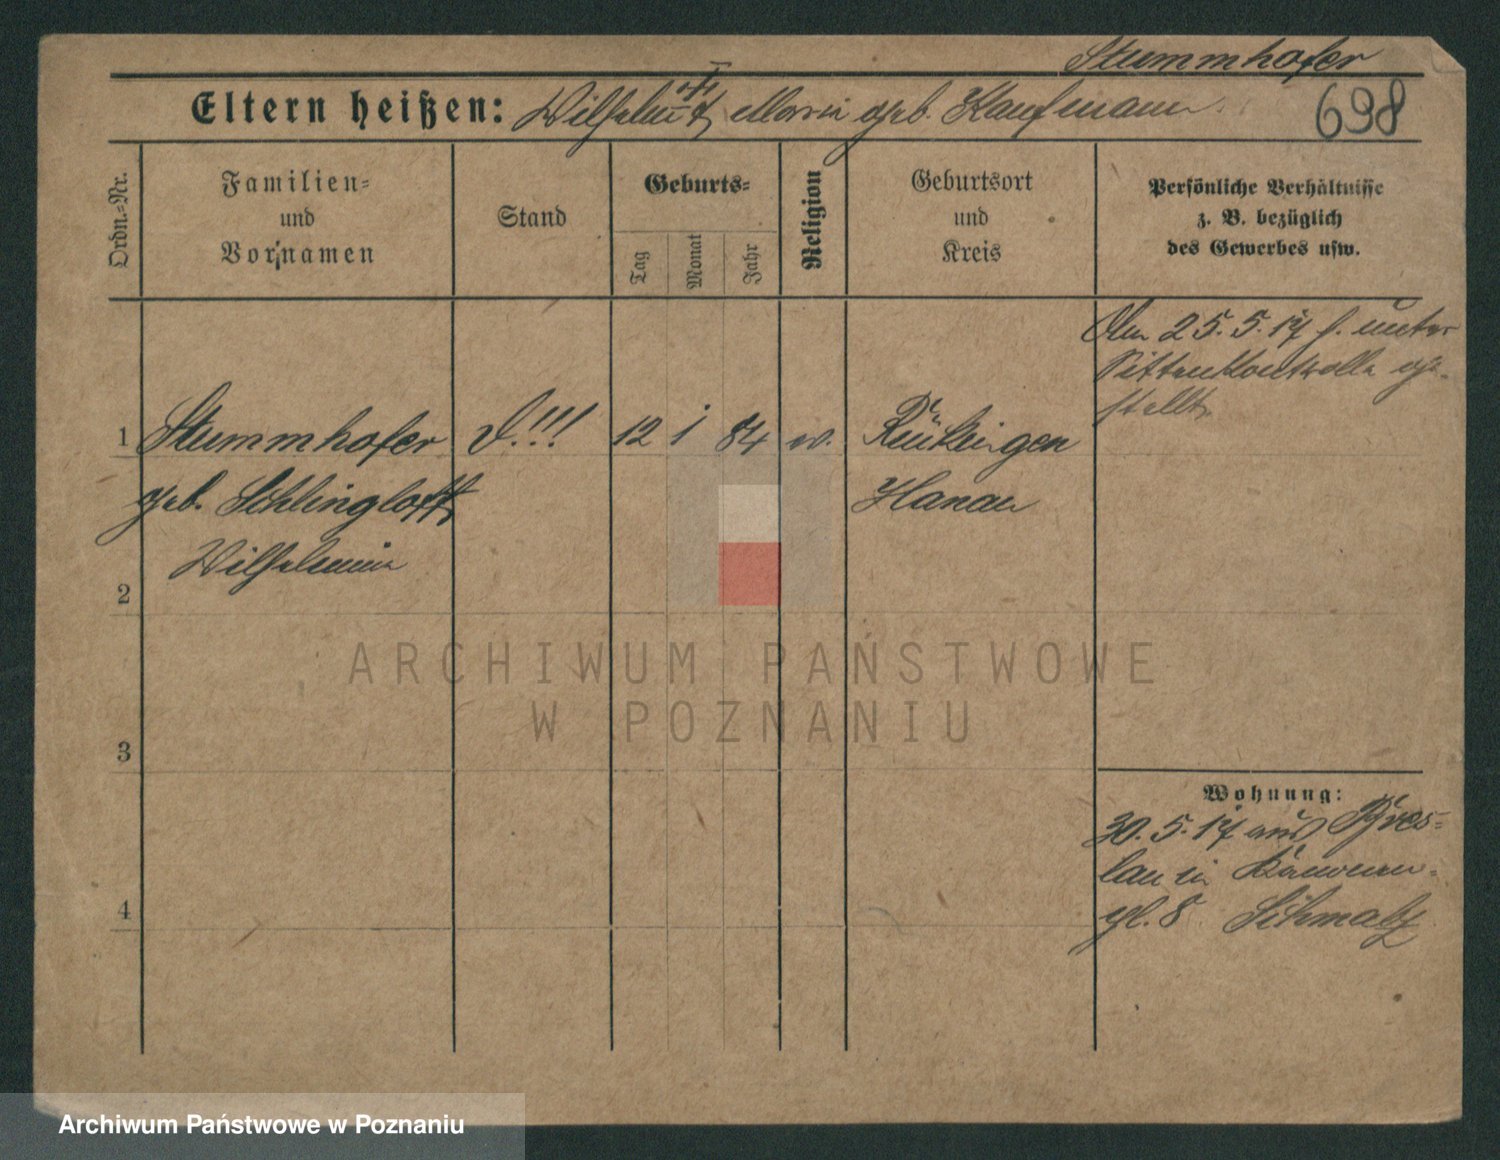 Stummhofer
Eltern heißen: Wilhelm u. Maria geb. Kaufmann.
698
Ordn.-Nr.
Familien-
und
Vornamen
Stand
Geburts-
Tag
Monat
Jahr
Religion
Geburtsort
und
Kreis
Persönliche Verhältnisse
z. B. bezüglich
des Gewerbes usw.
1
Stummhofer
geb. Schlingloff
Wilhelmine
!!!
12
1
84
ev.
Rückingen
Hanau
25.5.17 unter
Sittenkontrolle ge-
stellt.
2
3
4
Wohnung:
30.5.17 aus Bres-
lau in
gl. 8 Schmalz
ARCHIWUM PAŃSTWOWE
W POZNANIU
Archiwum Państwowe w Poznaniu